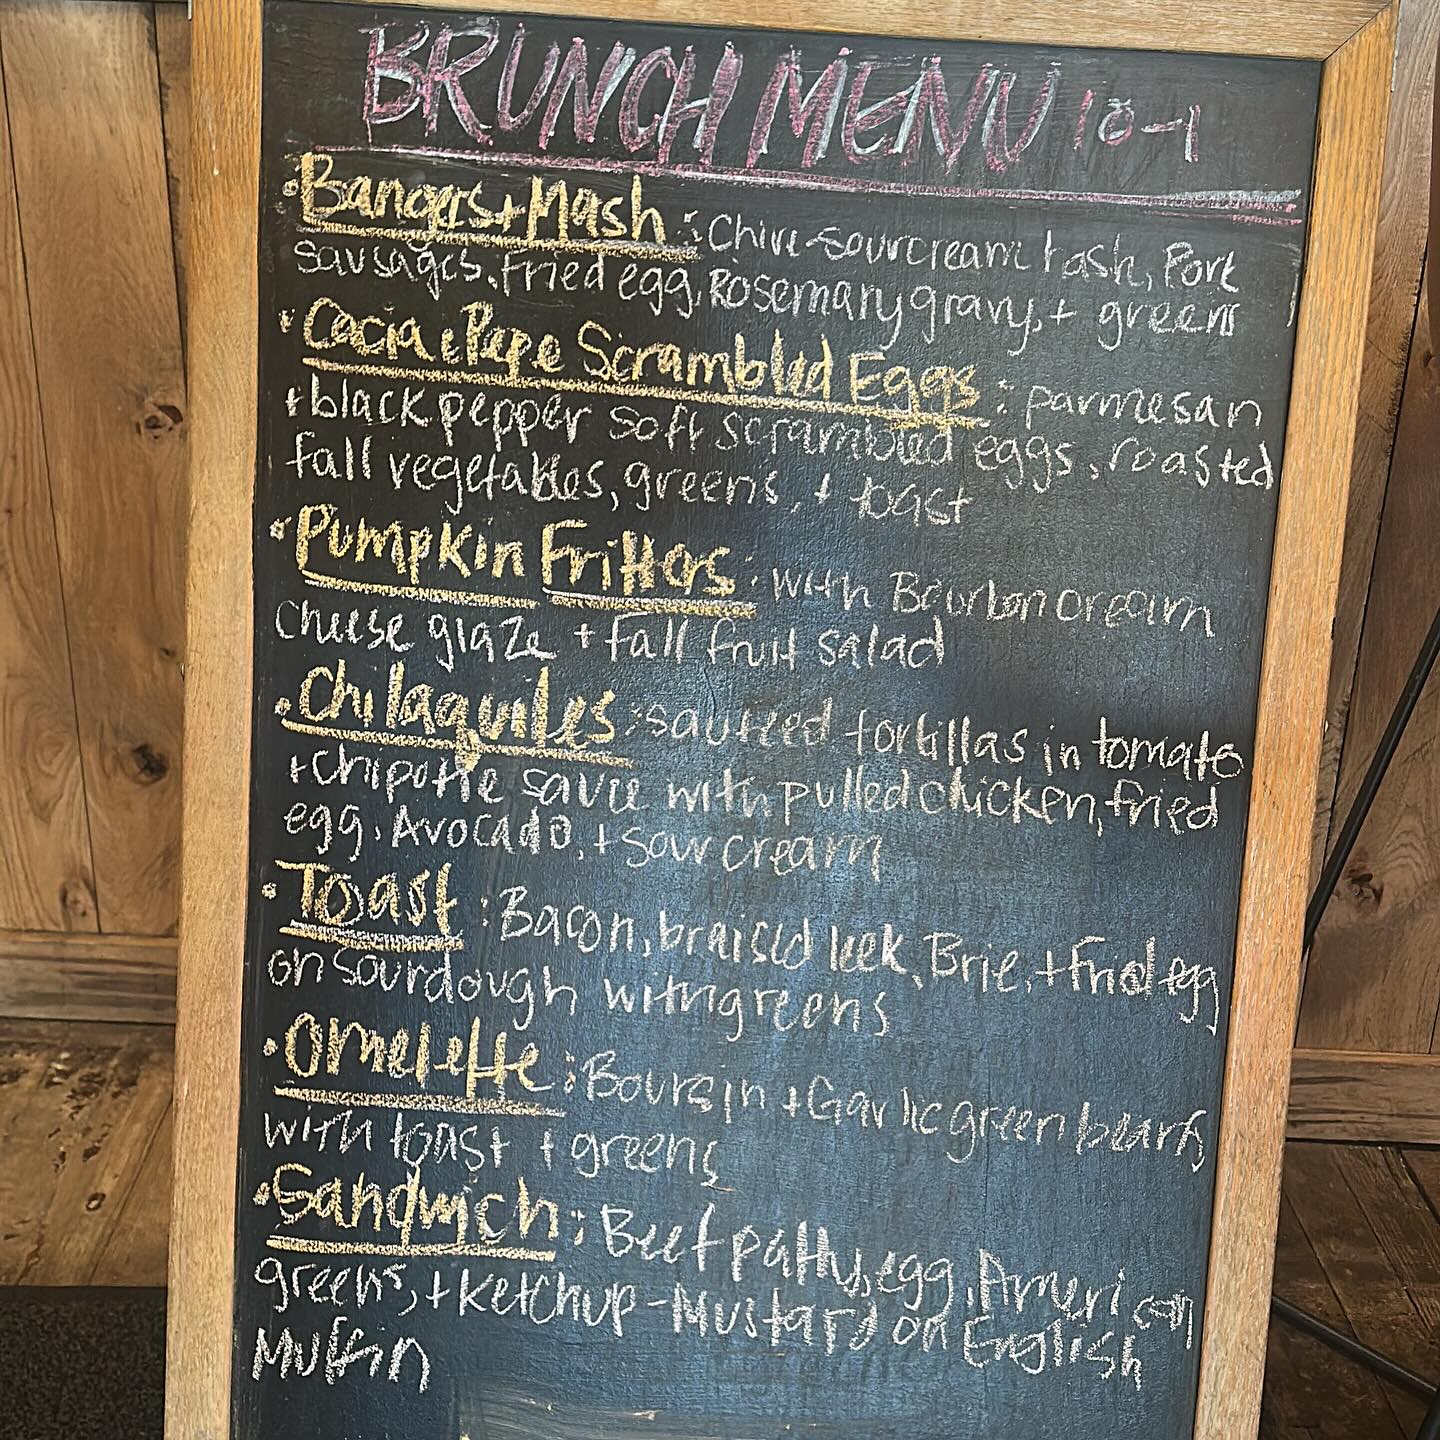 BRUNCH MENU 10-1
• Bangers + Mash : Chive-sourcream hash, Pork
sausages, fried egg, Rosemary gravy, + greens
• Cacia e Pepe Scrambled Eggs : parmesan
+ black pepper soft scrambled eggs, roasted
fall vegetables, greens, + toast
• Pumpkin Fritters : with Bourbon cream
cheese glaze + fall fruit salad
• Chilaquiles : sauteed tortillas in tomato
+ chipotle sauce with pulled chicken, fried
egg, Avocado, + sour cream
• Toast : Bacon, braised leek, Brie, + fried egg
on sourdough with greens
• Omelette : Boursin + Garlic green beans
with toast + greens
• Sandwich : Beef patty, egg, American
greens, + ketchup-Mustard on English
Muffin